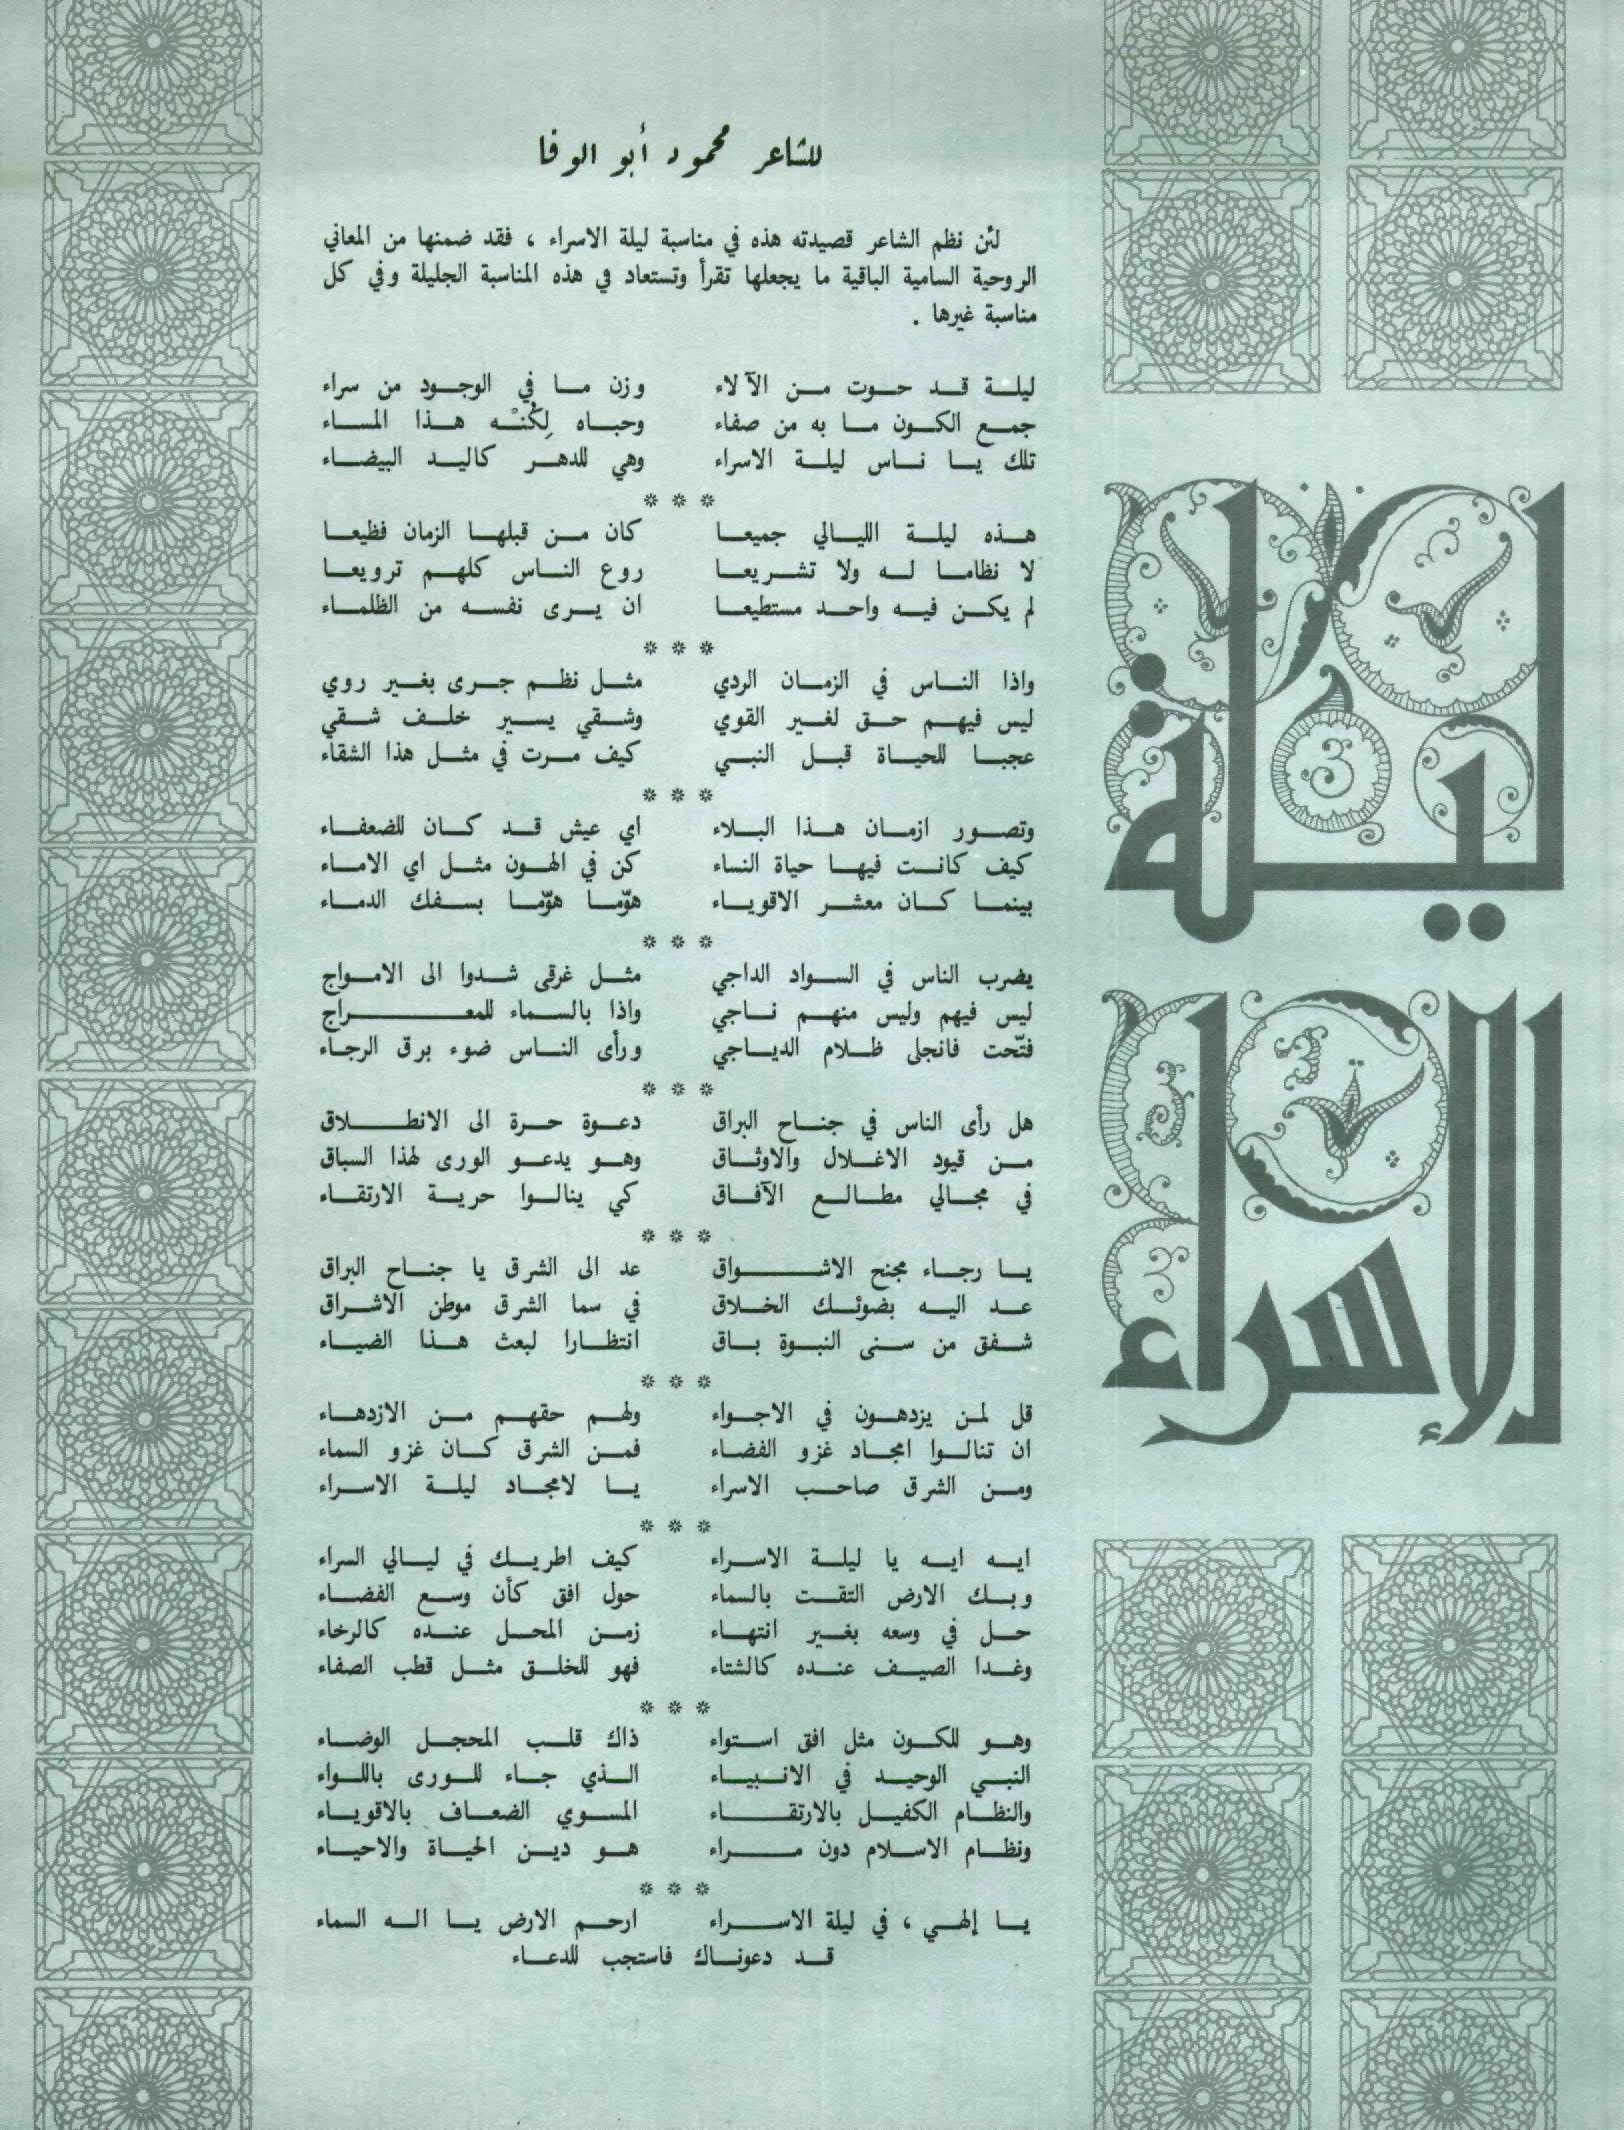 ليلة
الإسراء
للشاعر محمود أبو الوفا
لئن نظم الشاعر قصيدته هذه في مناسبة ليلة الاسراء ، فقد ضمنها من المعاني
الروحية السامية الباقية ما يجعلها تقرأ وتستعاد في هذه المناسبة الجليلة وفي كل
مناسبة غيرها .
ليلة قد حوت من الآلاء وزن ما في الوجود من سراء
جمع الكون ما به من صفاء وحباه لِكُنْه هذا المساء
تلك يا ناس ليلة الاسراء وهي للدهر كاليد البيضاء
* * *
هذه ليلة الليالي جميعا كان من قبلها الزمان فظيعا
لا نظاما له ولا تشريعا روع الناس كلهم ترويعا
لم يكن فيه واحد مستطيعا ان يرى نفسه من الظلماء
* * *
واذا الناس في الزمان الردي مثل نظم جرى بغير روي
ليس فيهم حق لغير القوي وشقي يسير خلف شقي
عجبا للحياة قبل النبي كيف مرت في مثل هذا الشقاء
* * *
وتصور ازمان هذا البلاء اي عيش قد كان للضعفاء
كيف كانت فيها حياة النساء كن في الهون مثل اي الاماء
بينما كان معشر الاقوياء هوّما هوّما بسفك الدماء
* * *
يضرب الناس في السواد الداجي مثل غرقى شدوا الى الامواج
ليس فيهم وليس منهم ناجي واذا بالسماء للمعراج
فتّحت فانجلى ظلام الدياجي ورأى الناس ضوء برق الرجاء
* * *
هل رأى الناس في جناح البراق دعوة حرة الى الانطلاق
من قيود الاغلال والاوثاق وهو يدعو الورى لهذا السباق
في مجالي مطالع الآفاق كي ينالوا حرية الارتقاء
* * *
يا رجاء مجنح الاشواق عد الى الشرق يا جناح البراق
عد اليه بضوئك الخلاق في سما الشرق موطن الاشراق
شفق من سنى النبوة باق انتظارا لبعث هذا الضياء
* * *
قل لمن يزدهون في الاجواء ولهم حقهم من الازدهاء
ان تنالوا امجاد غزو الفضاء فمن الشرق كان غزو السماء
ومن الشرق صاحب الاسراء يا لامجاد ليلة الاسراء
* * *
ايه ايه يا ليلة الاسراء كيف اطريك في ليالي السراء
وبك الارض التقت بالسماء حول افق كأن وسع الفضاء
حل في وسعه بغير انتهاء زمن المحل عنده كالرخاء
وغدا الصيف عنده كالشتاء فهو للخلق مثل قطب الصفاء
* * *
وهو للكون مثل افق استواء ذاك قلب المحجل الوضاء
النبي الوحيد في الانبياء الذي جاء للورى باللواء
والنظام الكفيل بالارتقاء المسوي الضعاف بالاقوياء
ونظام الاسلام دون مراء هو دين الحياة والاحياء
* * *
يا إلهي ، في ليلة الاسراء ارحم الارض يا اله السماء
قد دعوناك فاستجب للدعاء